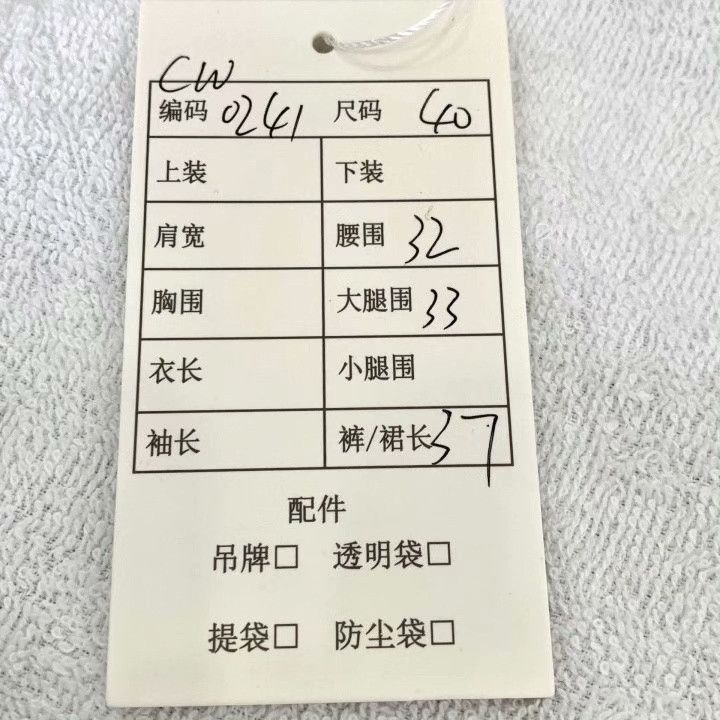 CW
编码 0241 尺码 40
上装 下装
肩宽 腰围 32
胸围 大腿围 33
衣长 小腿围
袖长 裤/裙长 37
配件
吊牌□ 透明袋□
提袋□ 防尘袋□